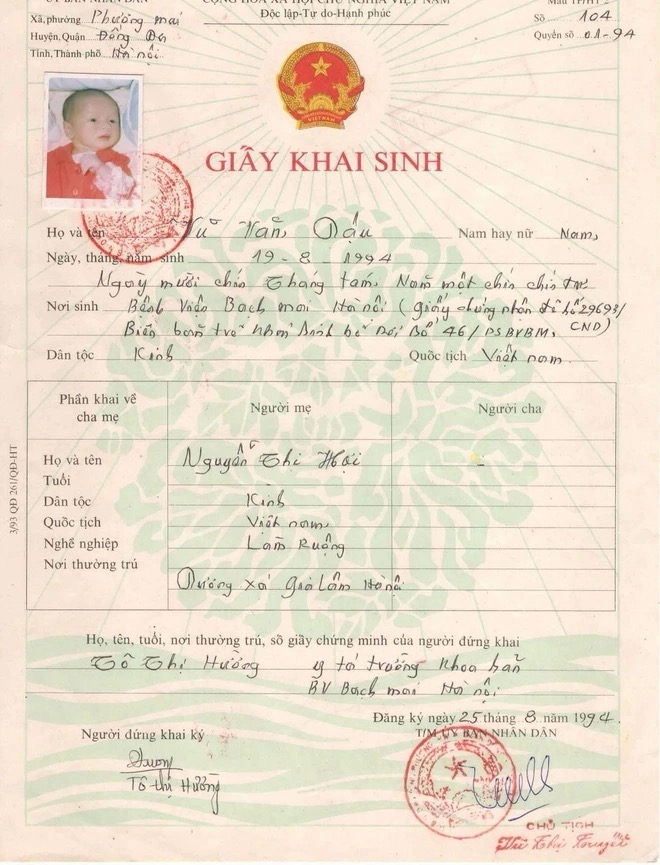 ỦY BAN NHÂN DÂN
CỘNG HÒA XÃ HỘI CHỦ NGHĨA VIỆT NAM
Mẫu TP/HT
Xã, phường Phương mai
Độc lập-Tự do-Hạnh phúc
Số 104
Huyện, Quận Đống Đa
Quyển số 01-94
Tỉnh, Thành phố Hà nội
VIỆT NAM
GIẤY KHAI SINH
Họ và tên Vũ Văn Dậu Nam hay nữ Nam
Ngày, tháng, năm sinh 19-8-1994
Ngày mười chín Tháng tám Năm một chín chín tư
Nơi sinh Bệnh Viện Bạch mai Hà nội (giấy chứng nhận số 29693/
CND)
Biên bản trẻ bỏ rơi số 46/PSBVBM
Dân tộc Kinh Quốc tịch Việt nam
Phần khai về cha mẹ
Người mẹ
Người cha
Họ và tên Nguyễn Thị Hợi -
Tuổi
Dân tộc Kinh
Quốc tịch Việt nam
Nghề nghiệp Làm Ruộng
Nơi thường trú
Dương xá Gia Lâm Hà nội
3/93 QĐ 261/QĐ-HT
Họ, tên, tuổi, nơi thường trú, số giấy chứng minh của người đứng khai
Tô Thị Hường y tá trưởng Khoa Sản
BV Bạch mai Hà nội
Đăng ký ngày 25 tháng 8 năm 1994
Người đứng khai ký
T/M ỦY BAN NHÂN DÂN
Tô thị Hường
CHỦ TỊCH
Vũ Thị Tuyết